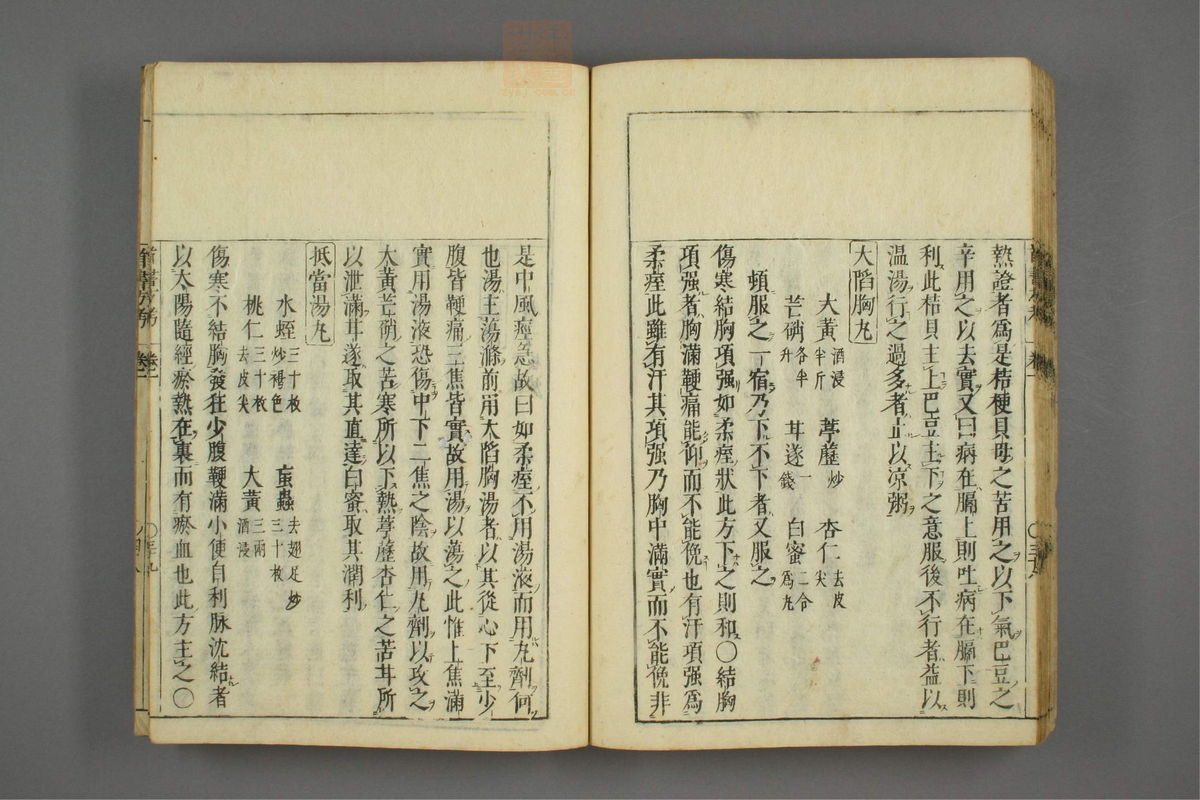 熱證者爲是桔梗貝母之苦用之以下氣巴豆之
辛用之以去實又曰病在膈上則吐病在膈下則
利此桔貝主上巴豆主下之意服後不行者益以
温湯行之過多者止以凉粥
大陷胸丸
大黃酒浸半斤 葶藶炒 杏仁去皮尖
芒硝各半升 甘遂一錢 白蜜二合爲丸
頓服之一宿乃下不下者又服之
傷寒結胸項强如柔痓狀此方下之則和〇結胸
項强者胸滿鞕痛能仰而不能俛也有汗項强爲
柔痓此雖有汗其項强乃胸中滿實而不能俛非
是中風痓急故曰如柔痓不用湯液而用丸劑何
也湯主蕩滌前用大陷胸湯者以其從心下至少
腹皆鞕痛三焦皆實故用湯以蕩之此惟上焦滿
實用湯液恐傷中下二焦之陰故用丸劑以攻之
大黃芒硝之苦寒所以下熱葶藶杏仁之苦甘所
以泄滿甘遂取其直達白蜜取其潤利
抵當湯丸
水蛭三十枚炒褐色 䖟蟲去翅足炒三十枚
桃仁三十枚去皮尖 大黃三兩酒浸
傷寒不結胸發狂少腹鞕滿小便自利脉沈結者
以太陽隨經瘀熱在裏而有瘀血也此方主之〇